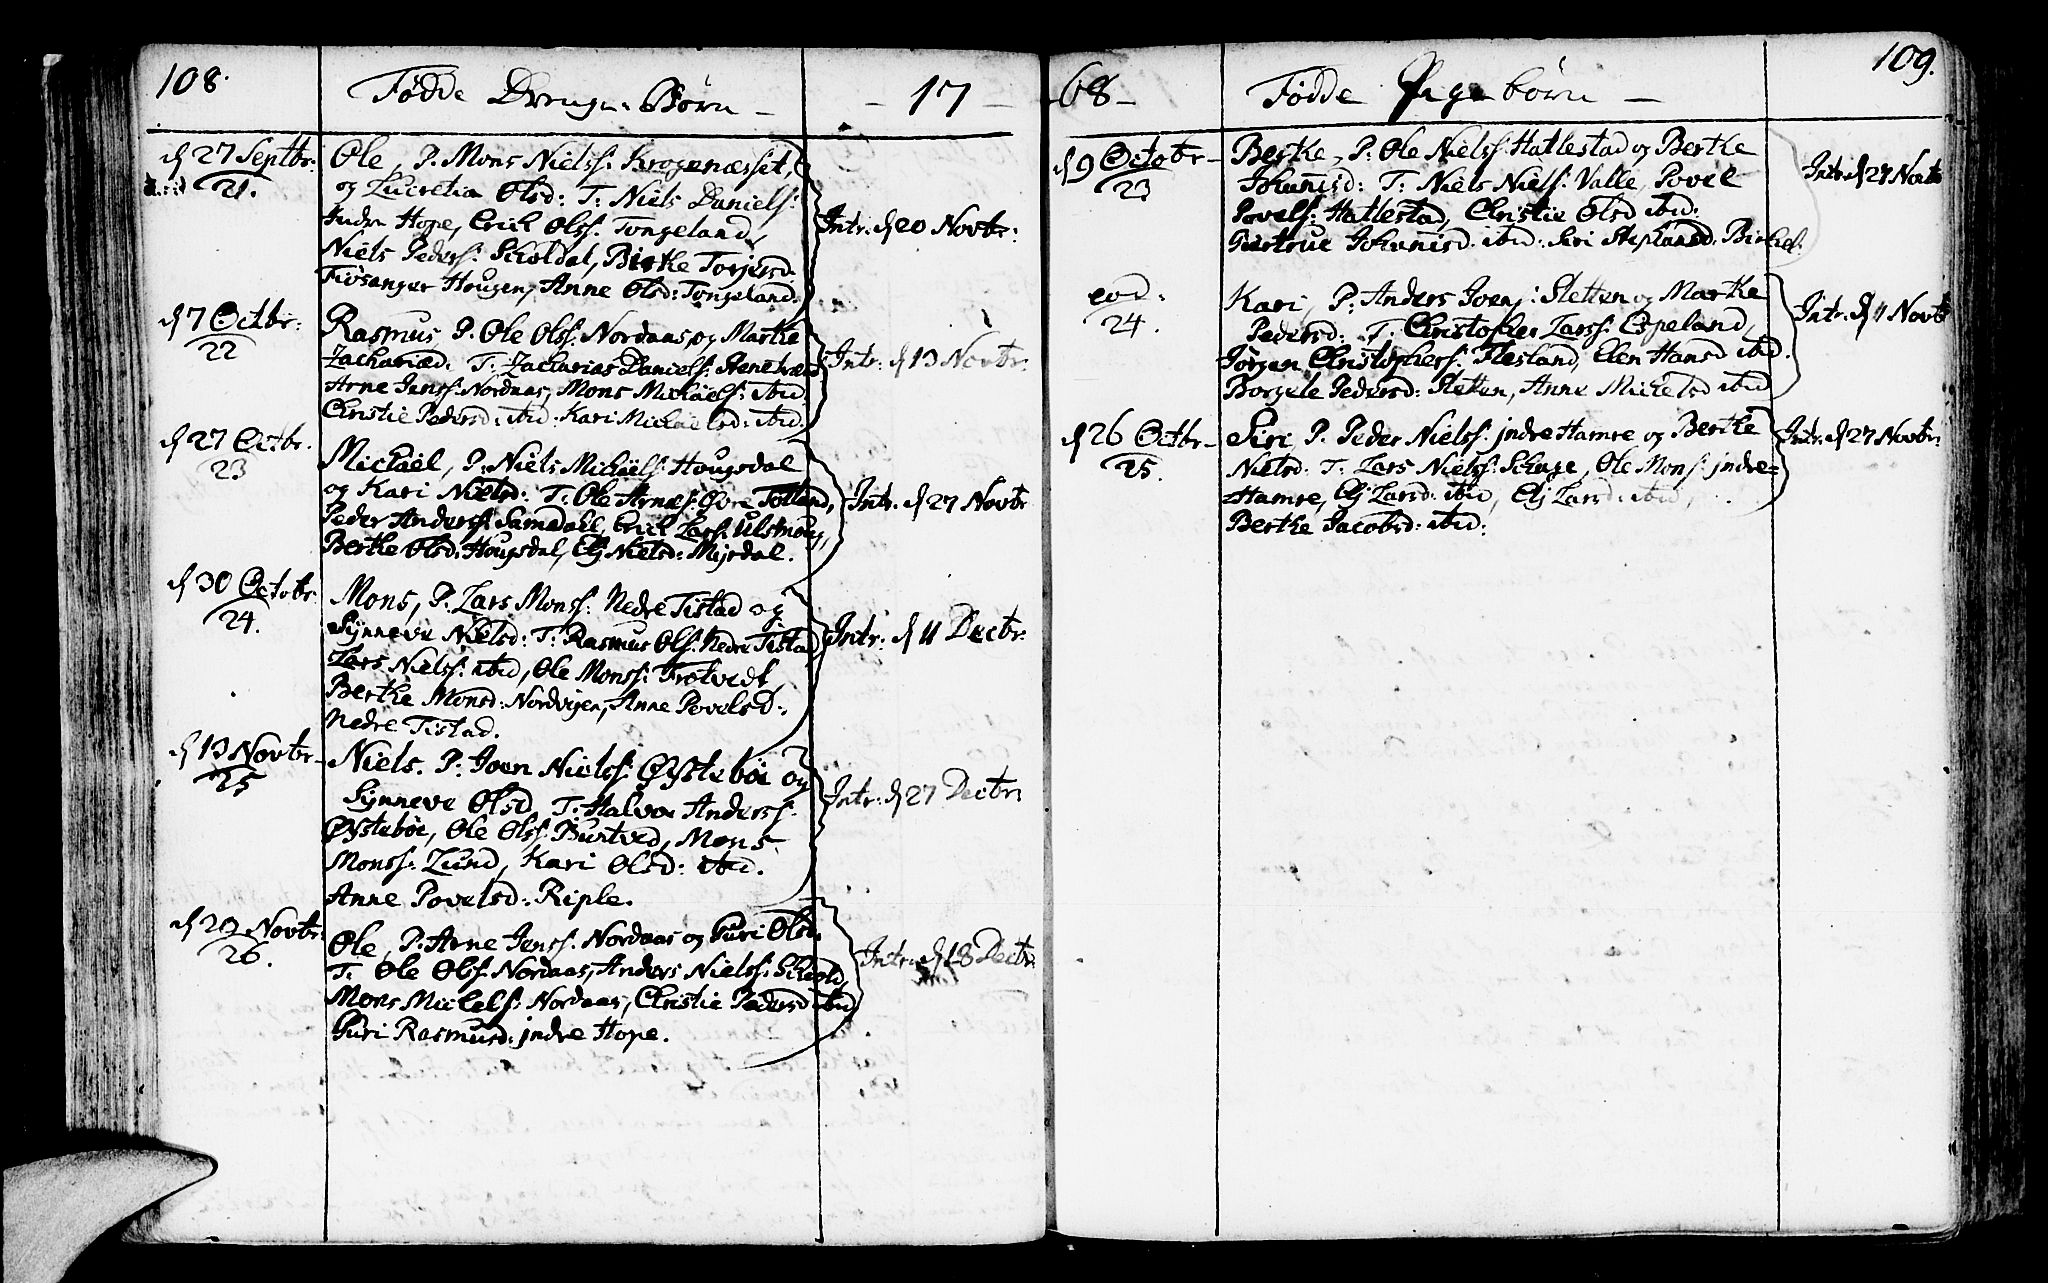 108.
Fødde Drenge-Børn -
- 17 -
d 27 Septbr:
21.
Ole, P. Mons Nielss: Krogenæsset,
og Lucretia Olsd: T: Niels Daniels:
Indre Hope, Erich Olss. Tongeland,
Niels Peders: Skoldal, Birte Torjersd.
Fiøsanger Hougen, Anne Olsd: Tongeland.
Intr. d 20 Novbr:
d 7 Octbr:
22
Rasmus, P. Ole Olss: Nordaas, og Marthe
Zachariæd. T: Zacharias Daniels:
Arne Jenss: Nordaas, Mons Michäels: ibid.
Christie Pedersd: ibid: Kari Michäelsd: ibid.
Intr: d 13 Novbr:
d 27 Octbr.
23
Michäel, P: Niels Michëels: Hougsdal
og Kari Nielsd: T: Ole Arnæs: Øvre Totland,
Peder Anderss: Samdahl, Erich Larss: Ulsmoug,
Berthe Olsd: Hougsdal, Elj Nielsd: Myrdal.
Intr. d 27 Novbr
d 30 Octobr:
24.
Mons, P. Lars Monss: Nedre Tistad og
Synneve Nielsd: T: Rasmus Olss. Nedre Tistad
Lars Nielss: ibid, Ole Monss: Trotvedt
Berthe Monsd: Nordvigen, Anne Povelsd:
Nedre Tistad.
Intr: d 11 Decbr:
d 13 Novbr-
25
Niels. P: Joen Nielss: Østebøe og
Synneve Olsd, T: Halvor Anderss:
Østebøe, Ole Olss: Burtved, Mons
Monss: Lund, Kari Olsd: ibid.
Anne Povelsd: Riple.
Intr: d 27 Decbr:
d 20 Novbr:
26.
Ole, P: Arne Jenss: Nordaas og Guri Olsd.
T. Ole Olss. Nordaas, Anders Nielss: Skiold,
Mons Michels: Nordaas, Christie Pedersd ibid
Guri Rasmusd: indre Hope.
Intr: d 18 Decbr:
68 -
Fødde Pigebørn -
109.
d 9 Octobr-
23
Berthe, P: Ole Nielss: Hatlestad og Berthe
Johanisd: T: Niels Niels: Valle, Povel
Povels: Hatlestad, Christie Olsd ibid:
Giertrue Johanisd. ibid: Siri Stephansd:
Intr. d 27 Novb
eod:
24.
Kari, P: Anders Joens: Sletten og Marthe
Pedersd: T: Christopher Larss: Espeland,
Jørgen Christophers: Flesland, Elen Hansd ibid.
Borgele Pedersd: Sletten, Anne Michelsd ibid
Intr. d 11 Novb
d 26 Octbr-
25.
Siri P. Peder Nielss: indre Hamre og Berthe
Nielsd: T: Lars Nielss: Skage, Ole Mons: indre=
Hamre, Elj Larsd: ibid, Elj Larsd: ibid,
Berthe Jacobsd: ibid:
Intr: d 27 Novbr: